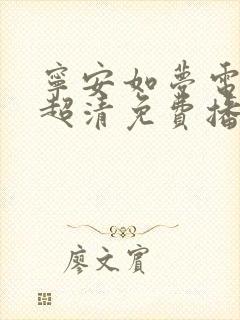 寧安如夢電
超清免費播
廖文賓